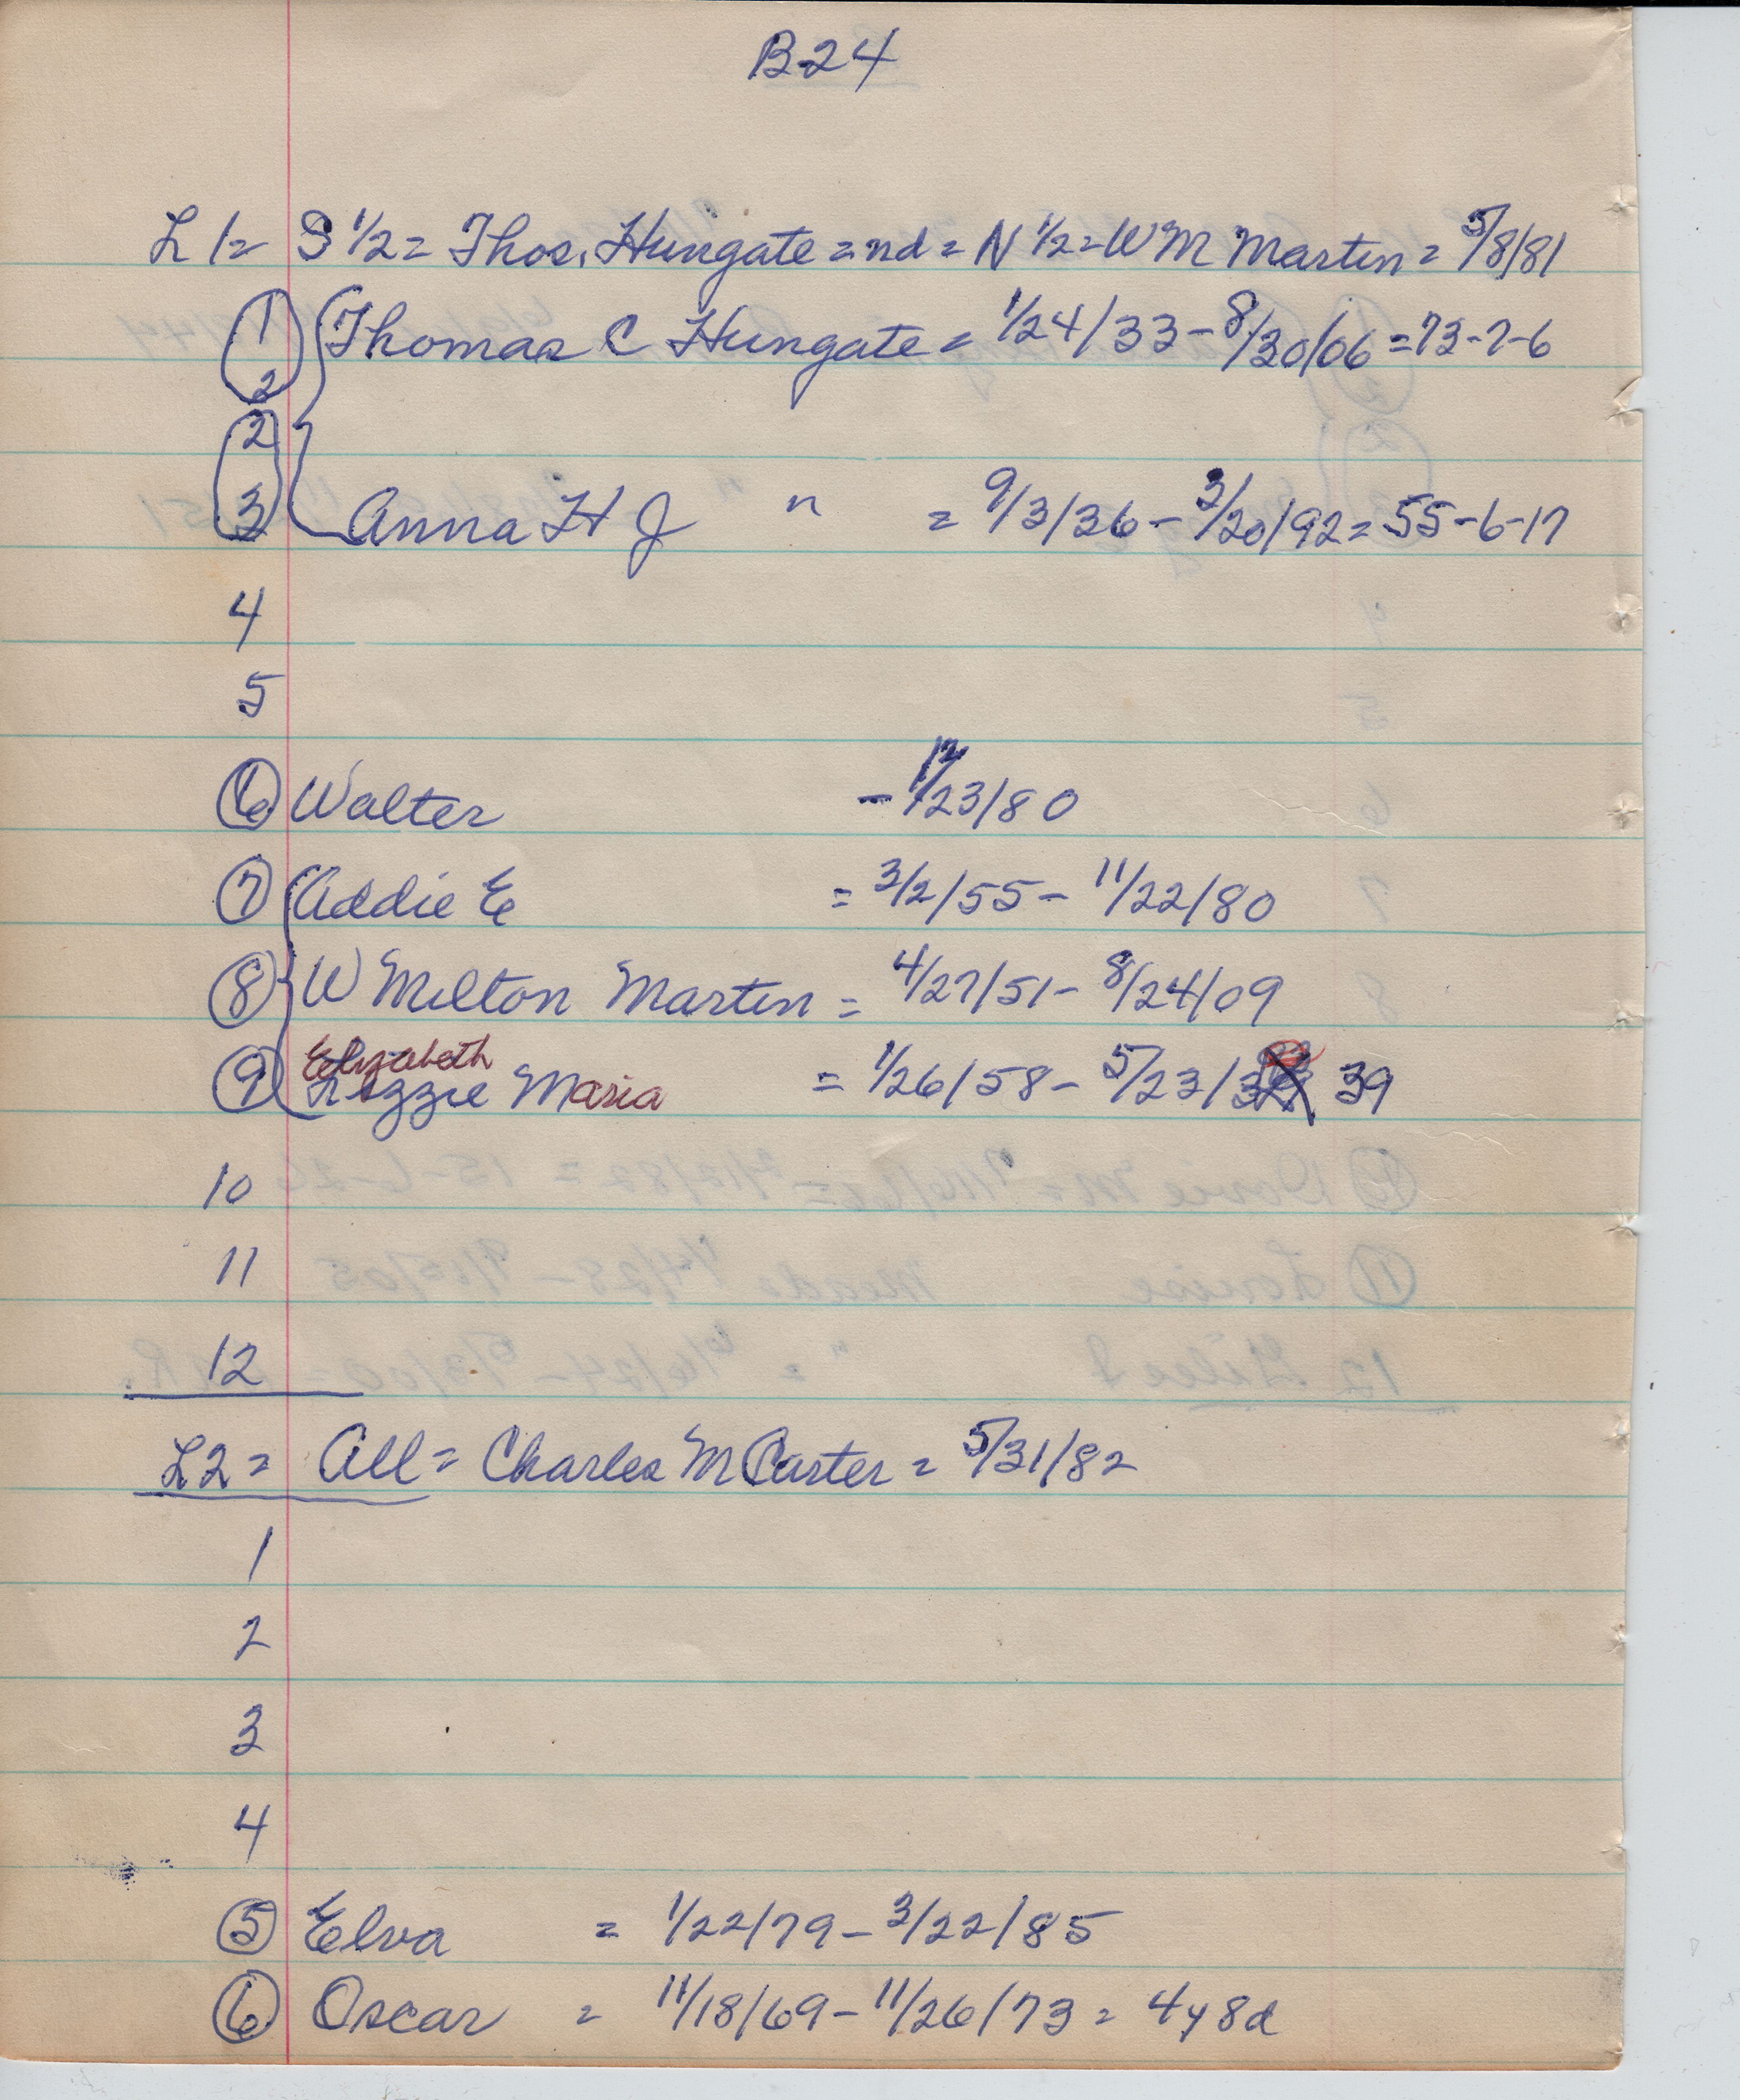 B24
L 1= S 1/2 = Thos. Hungate = nd = N 1/2 = W M Martin = 5/8/81
1 Thomas C Hungate = 1/24/33 - 8/30/06 = 73-7-6
2
2
3 Anna H J " = 9/3/36 - 3/20/92 = 55-6-17
4
5
6 Walter - 12/23/80
7 Addie E = 3/2/55 - 11/22/80
8 W Milton Martin = 4/27/51 - 8/24/09
Elizabeth
9 Lizzie Maria = 1/26/58 - 5/23/ 39
10
11
12
L2 = All = Charles M Carter = 5/31/82
1
2
3
4
5 Elva = 1/22/79 - 3/22/85
6 Oscar = 11/18/69 - 11/26/73 = 4y8d